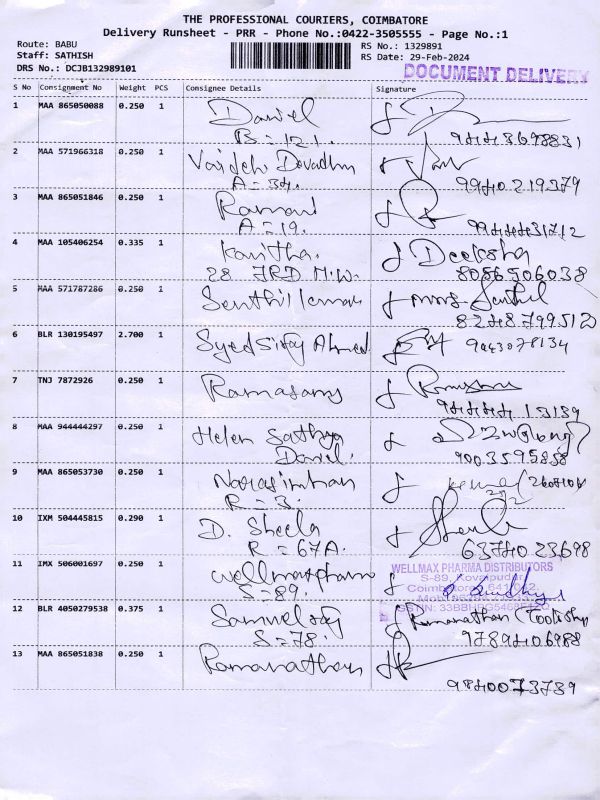 THE PROFESSIONAL COURIERS, COIMBATORE
Delivery Runsheet - PRR - Phone No.:0422-3505555 - Page No.:1
Route: BABU
Staff: SATHISH
DRS No.: DCJB132989101
RS No.: 1329891
RS Date: 29-Feb-2024
DOCUMENT DELIVERY
S No Consignment No Weight PCS Consignee Details Signature
1 MAA 865050088 0.250 1 Daniel
B = 121.
2 MAA 571966318 0.250 1
A = 34. 9940219379
3 MAA 865051846 0.250 1
A = 19.
4 MAA 105406254 0.335 1 Kavitha. Deeksha
28 8056506038
5 MAA 571787286 0.250 1 Senthil kumar
6 BLR 130195497 2.700 1 Syed Siraj Ahmed 9043078134
7 TNJ 7872926 0.250 1 Ramasamy
8 MAA 944444297 0.250 1 Helen Sathya
Daniel. 9003595858
9 MAA 865053730 0.250 1 Narasimhan
R = 3.
10 IXM 504445815 0.290 1 D. Sheela
R = 67A. 6374023698
11 IMX 506001697 0.250 1 wellmaxpharma WELLMAX PHARMA DISTRIBUTORS
S = 89. S-89, Kovaipudur
Coimbatore - 641 042
12 BLR 4050279538 0.375 1 Samuel raj Ramanathan
S = 78. 9789406988
13 MAA 865051838 0.250 1 Ramanathan
9840073739